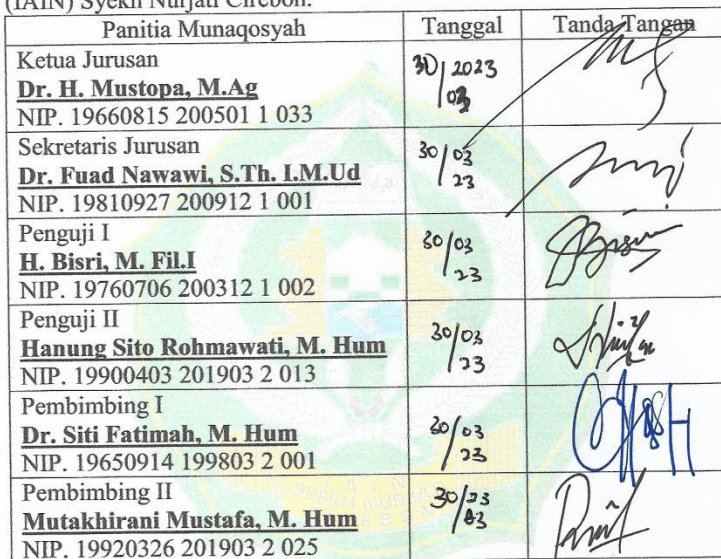 (IAIN) Syekh Nurjati Cirebon.
Panitia Munaqosyah Tanggal Tanda Tangan
Ketua Jurusan
Dr. H. Mustopa, M.Ag
NIP. 19660815 200501 1 033
30/2023
03
Sekretaris Jurusan
Dr. Fuad Nawawi, S.Th. I.M.Ud
NIP. 19810927 200912 1 001
30/03
23
Penguji I
H. Bisri, M. Fil.I
NIP. 19760706 200312 1 002
30/03
23
Penguji II
Hanung Sito Rohmawati, M. Hum
NIP. 19900403 201903 2 013
30/03
23
Pembimbing I
Dr. Siti Fatimah, M. Hum
NIP. 19650914 199803 2 001
30/03
23
Pembimbing II
Mutakhirani Mustafa, M. Hum
NIP. 19920326 201903 2 025
30/23
03
IAIN
SYEKH NURJATI